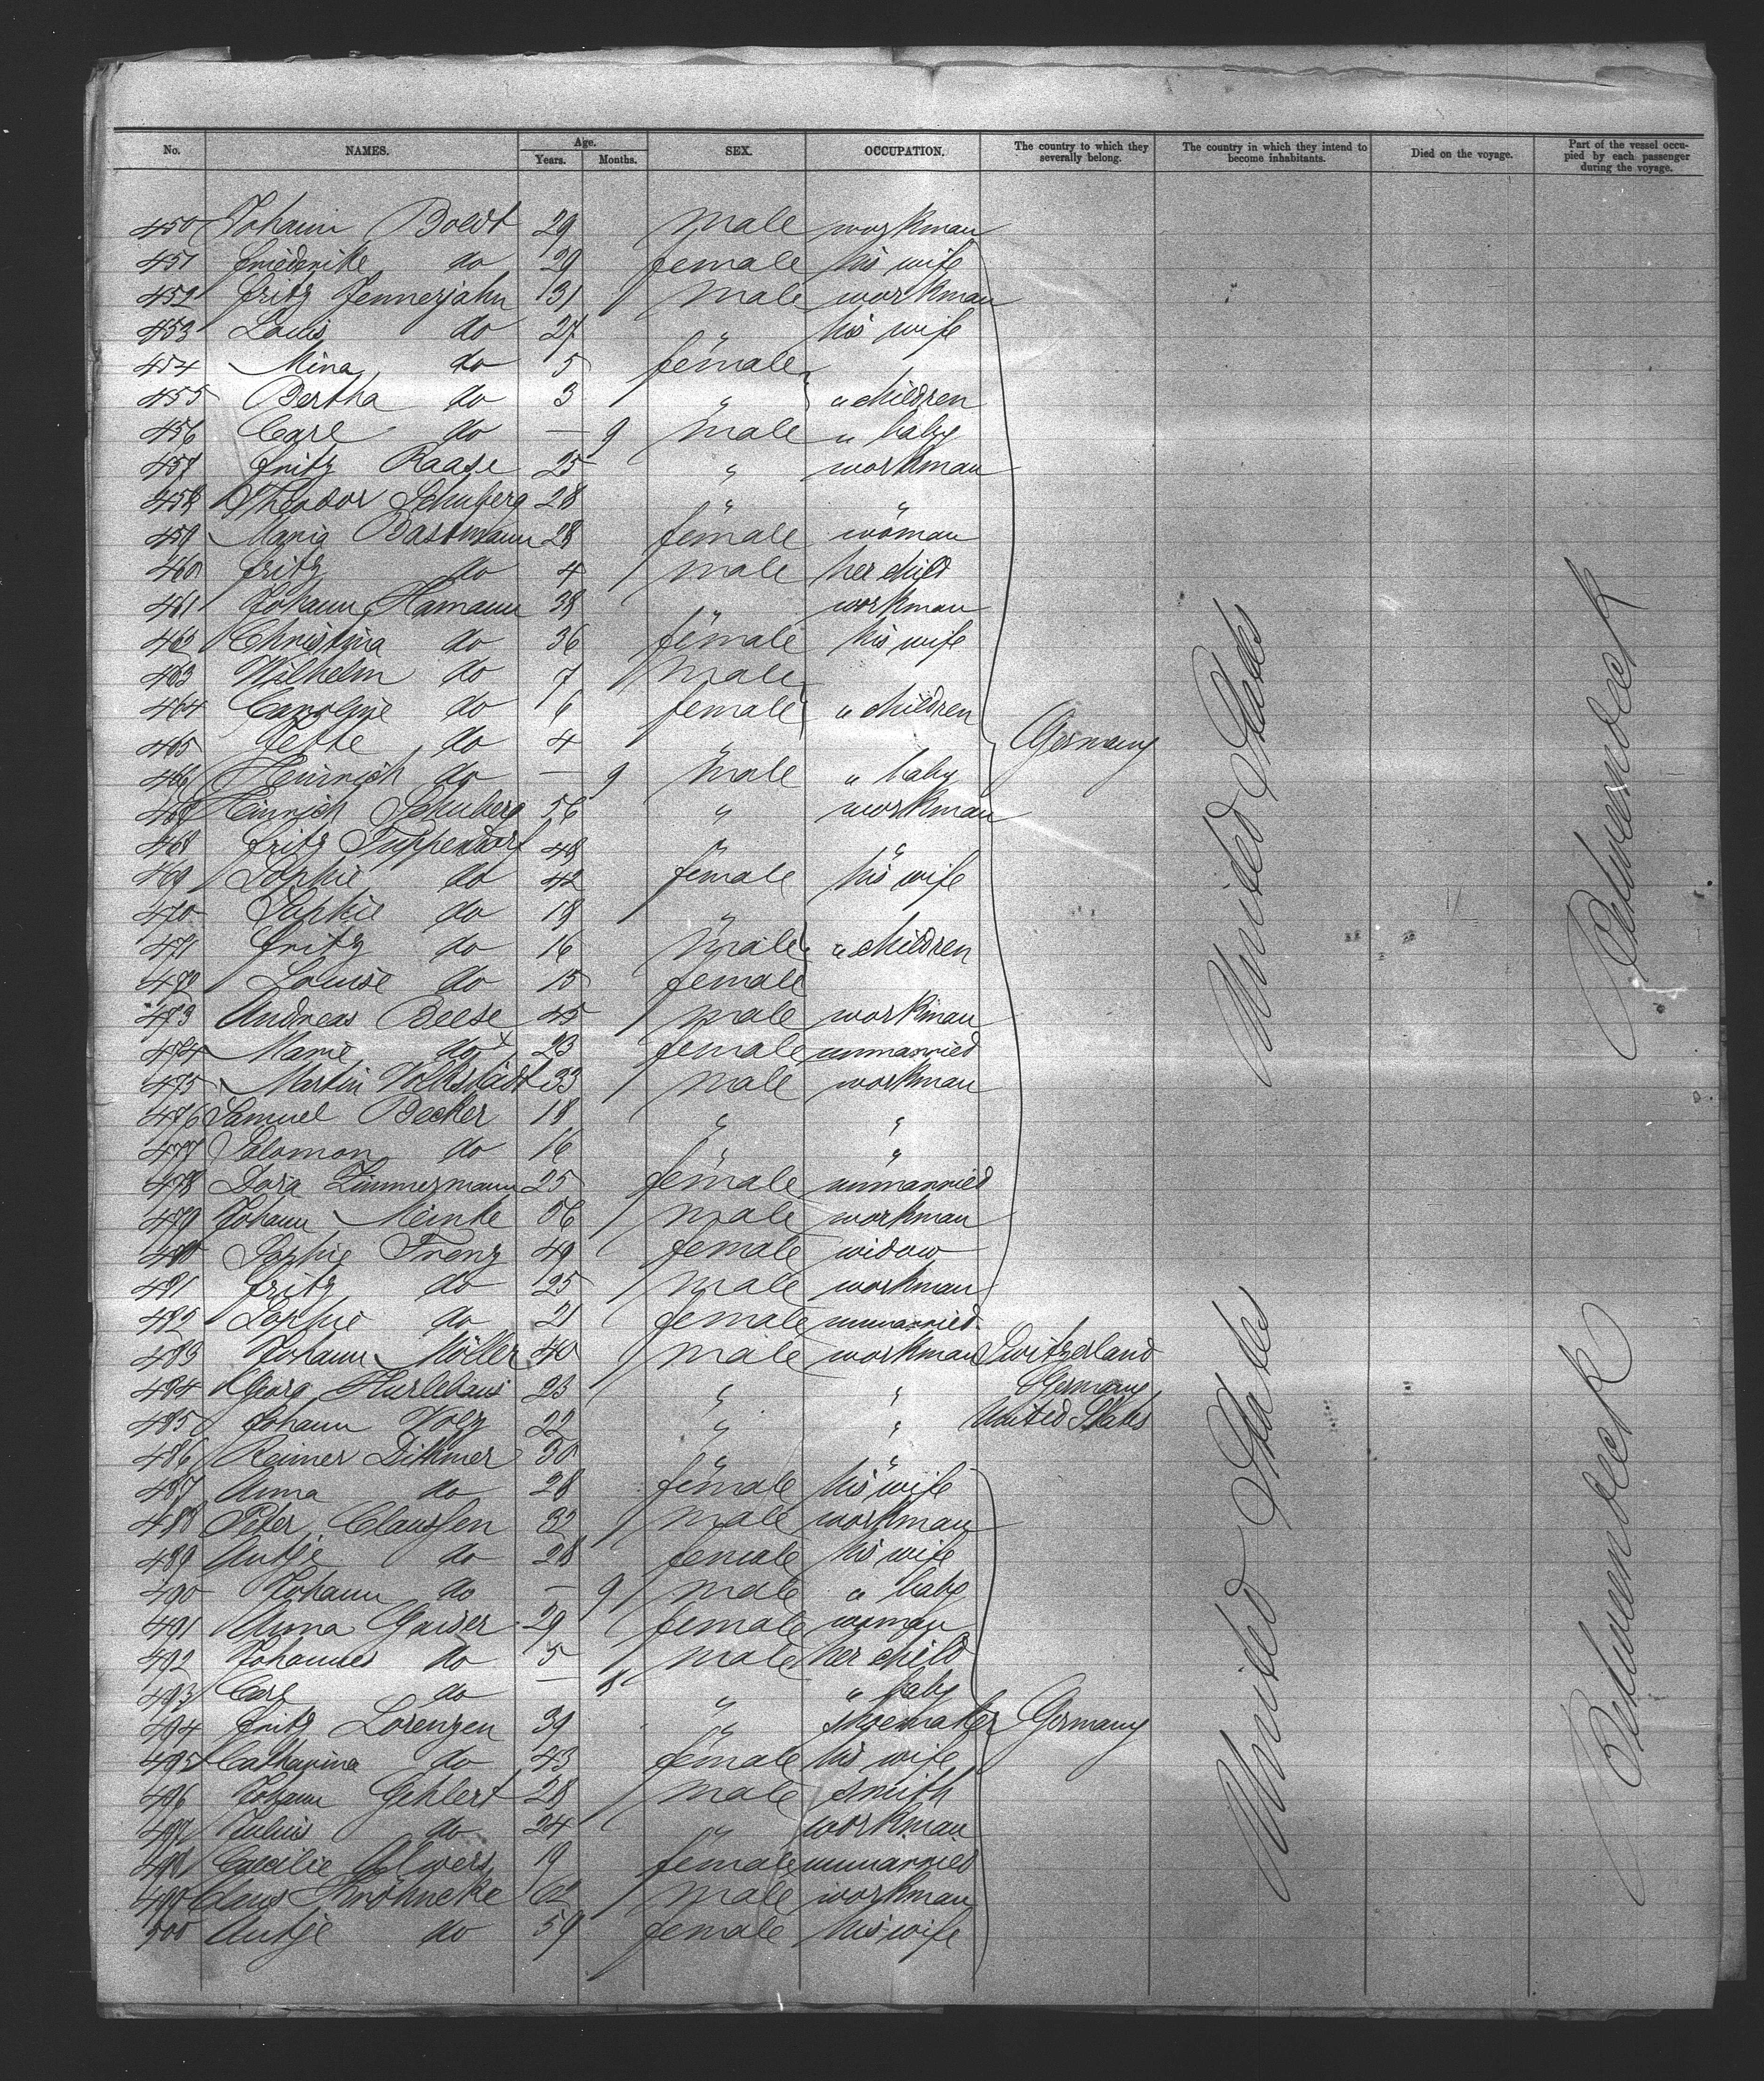 No. NAMES. Age. Years. Months. SEX. OCCUPATION. The country to which they severally belong. The country in which they intend to become inhabitants. Died on the voyage. Part of the vessel occupied by each passenger during the voyage.
450 Johann Boldt 29 male workman
451 Friederike do 29 female his wife
452 Fritz Jennerjahn 31 male workman
453 Louis do 27 " his wife
454 Mina do 5 female
455 Bertha do 3 " " children
456 Carl do — 9 male " baby
457 Fritz Raase 25 " workman
458 Theodor Schuberg 28 " "
459 Maria Bastmann 28 female woman
460 Fritz do 4 male her child
461 Johann Hamann 38 " workman
462 Christina do 36 female his wife
463 Wilhelm do 7 male
464 Caroline do 6 female " children
465 Jette do 4 " Germany
466 Heinrich do — 9 male " baby
467 Heinrich Schuberg 56 " workman
468 Fritz Tuppendorf 48 " "
469 Sophie do 42 female his wife
470 Sophie do 18 "
471 Fritz do 16 male " children
472 Louise do 15 female
473 Andreas Beese 45 male workman
474 Marie do 23 female unmarried
475 Martin Volkstädt 33 male workman
476 Samuel Becker 18 " "
477 Salomon do 16 " "
478 Dora Zimmermann 25 female unmarried
479 Johann Meinke 56 male workman
480 Sophie Frenz 49 female widow
481 Fritz do 25 male workman
482 Sophie do 21 female unmarried
483 Johann Möller 40 male workman Switzerland
484 Georg Hurlebaus 23 " " Germany
485 Johann Volz 22 " " United States
486 Reimer Dithmer 30 " "
487 Anna do 28 female his wife
488 Peter Claussen 32 male workman
489 Antje do 28 female his wife
490 Johann do — 9 male " baby
491 Anna Gaiser 29 female woman
492 Johannes do 5 male her child
493 Carl do — 8 " " baby
494 Fritz Lorenzen 39 " shoemaker Germany
495 Catharina do 43 female his wife
496 Johann Gehlert 28 male smith
497 Julius do 24 " workman
498 Caecilie Alwers 19 female unmarried
499 Claus Kröhncke 62 male workman
500 Antje do 59 female his wife
United States
United States
Betweendeck
Betweendeck